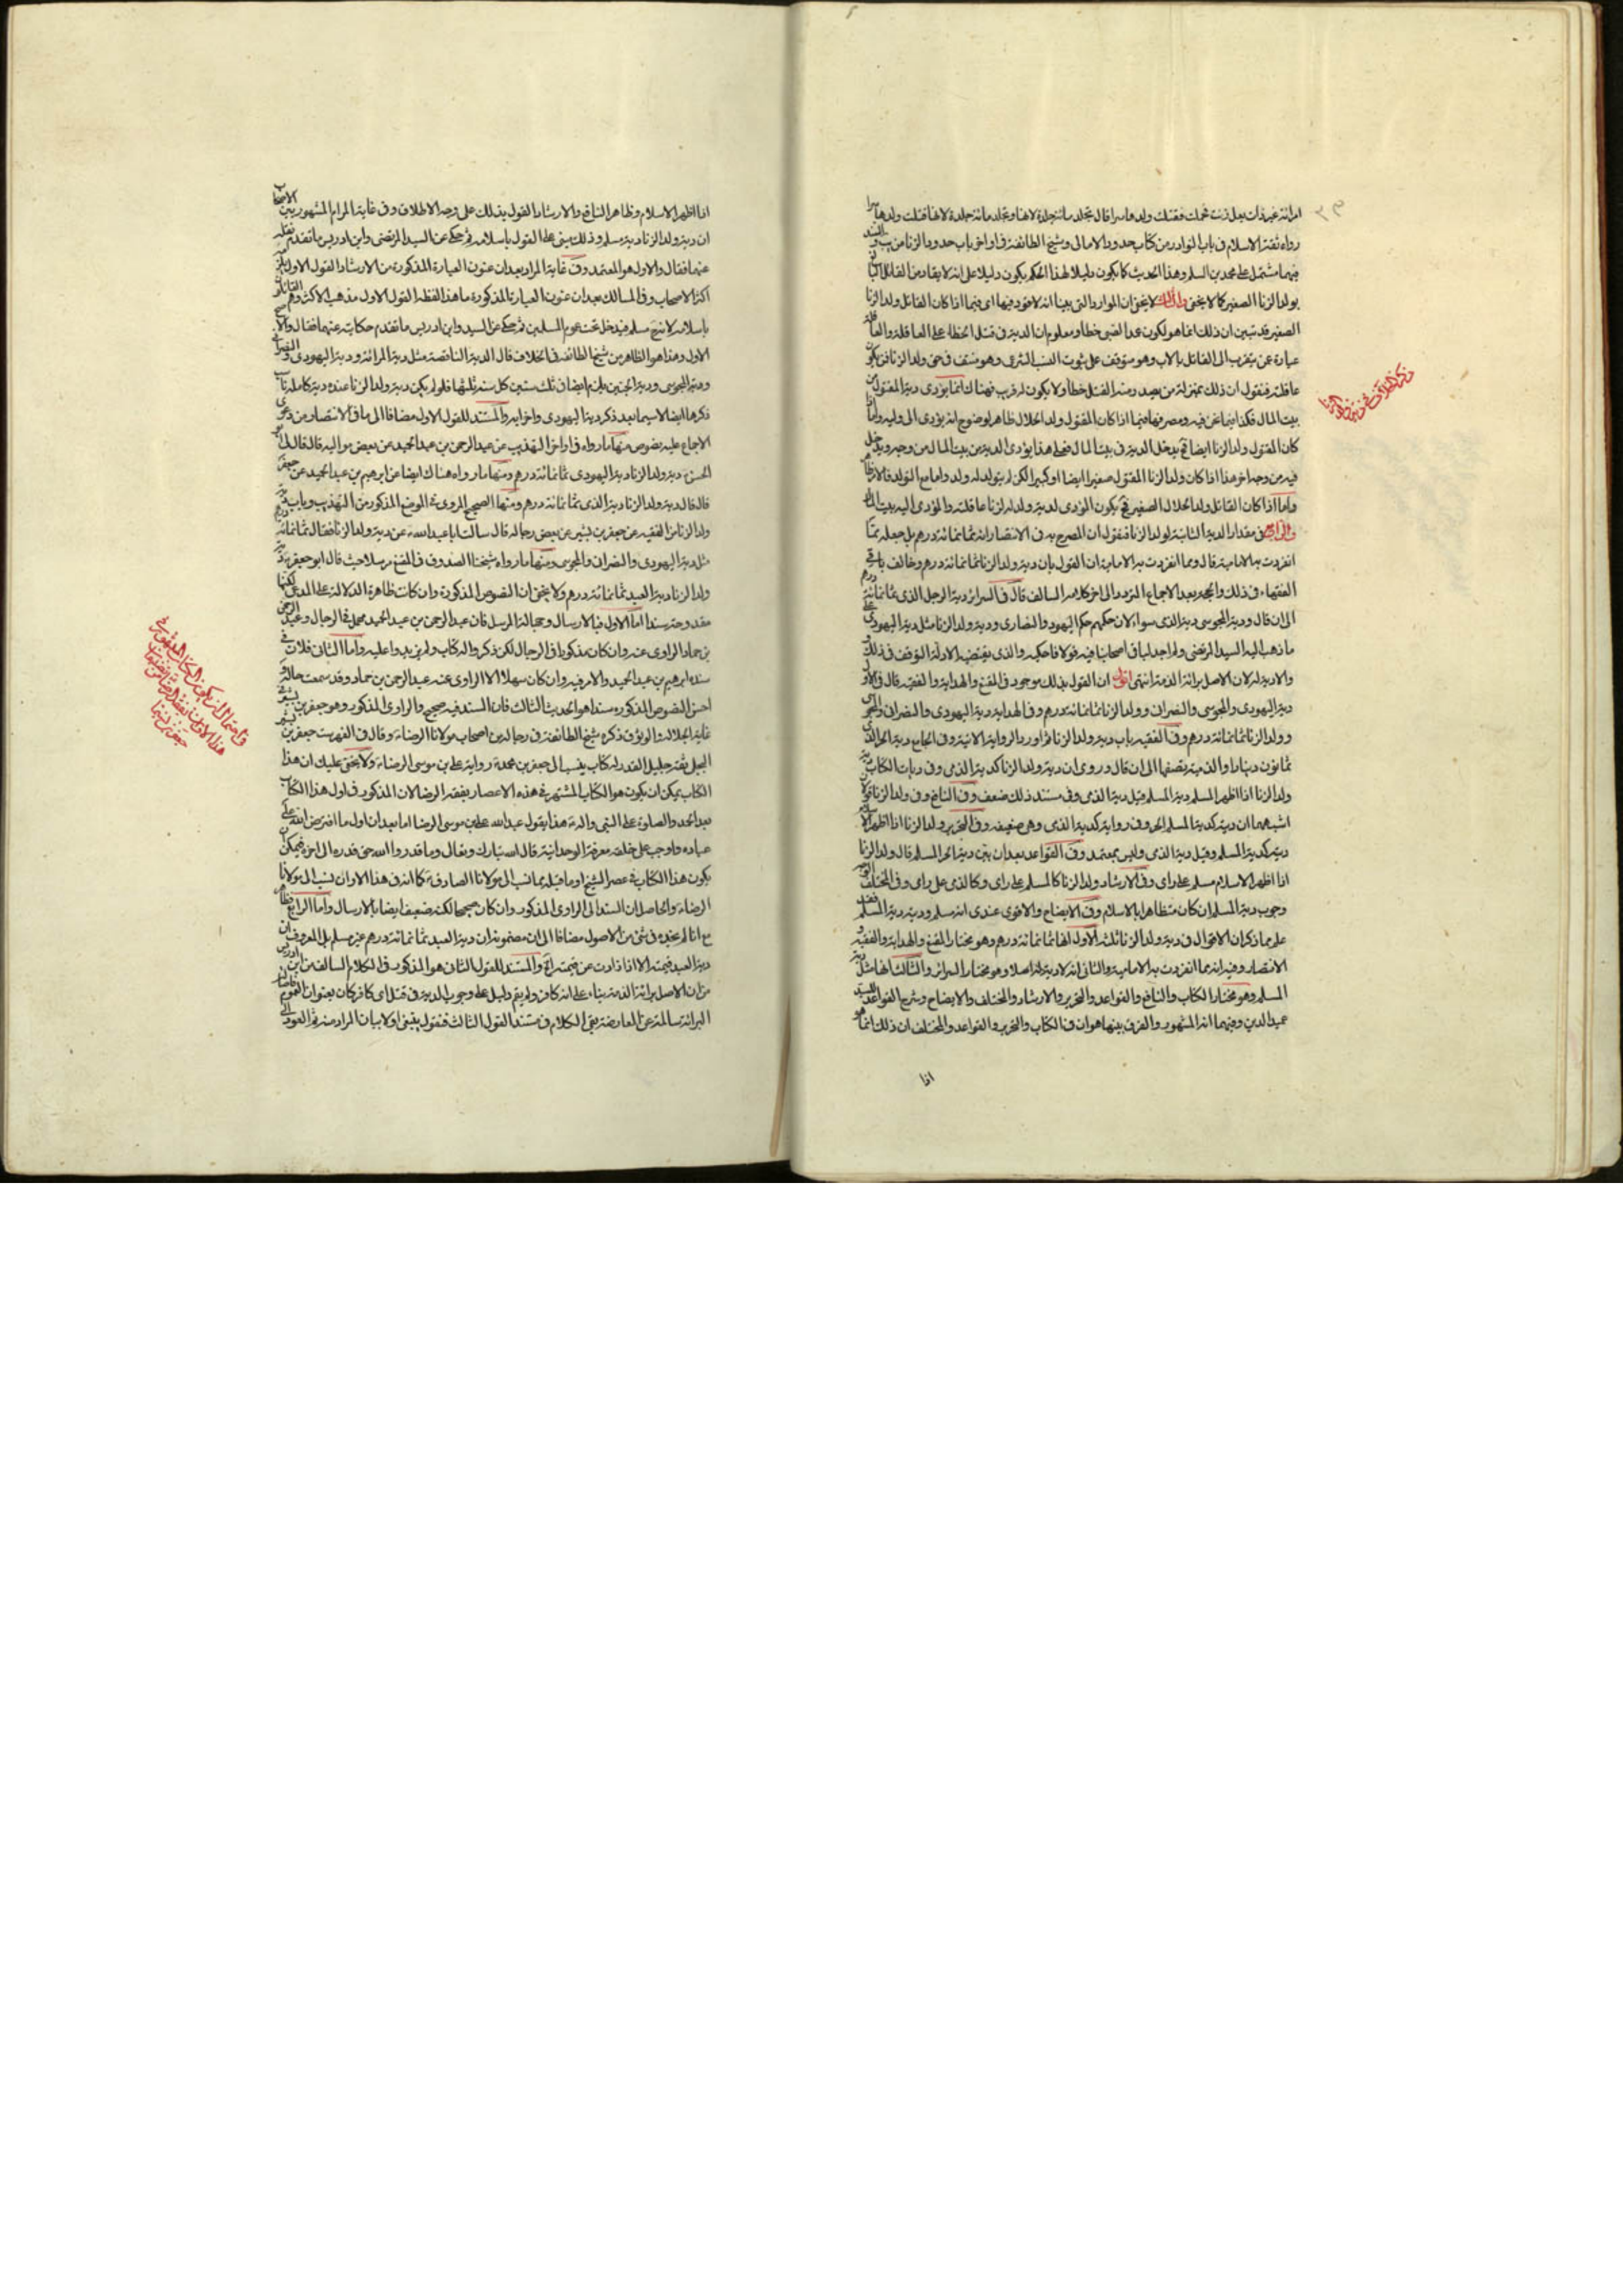 امرائة غير ذات بعل زنت فحملت فقتلت ولدها سرا قال تجلد مائة جلدة لانها وتجلد مائة جلدة لانها قتلت ولدها
رواه ثقة الاسلام في باب النوادر من كتاب حدود الامالى وشيخ الطائفة في اواخر باب حدود الزنا من يب والسند
فيهما مشتمل على محمد بن اسلم وهذا الحديث كما يكون دليلا لهذا الحكم يكون دليلا على انه لا يقاد من القاتل
بولد الزنا الصغير كما لا يخفى والثالث لا يخفى ان الموارد التى بينا انه لا قود فيها اى فيما اذا كان القاتل ولد الزنا
الصغير قد تبين ان ذلك انما هو لكون عمد الصبى خطأ ومعلوم ان الدية في قتل الخطاء على العاقلة والعاقلة
عبارة عمن يتقرب الى القاتل بالاب وهو متوقف على ثبوت النسب الشرعى وهو منتف في حق ولد الزنا فمن يكون
عاقلته فنقول ان ذلك بمنزلة من يصدر منه القتل خطأ ولا يكون له قريب فهناك انما يؤدى دية المقتول من
بيت المال فكذا فيما نحن فيه ومصرفها فيما اذا كان المقتول ولد الحلال ظاهر لوضوح انه يؤدى الى وليه واما اذا
كان المقتول ولد الزنا ايضا فح يدخل الدية في بيت المال فعلى هذا يؤدى الدية من بيت المال من وجه ويدخل
فيه من وجه اخر هذا اذا كان ولد الزنا المقتول صغيرا ايضا او كبيرا لكن لم يتولد له ولد واما مع التولد فالامر ظاهر
واما اذا كان القاتل ولد الحلال الصغير فح يكون المؤدى لدية ولد الزنا عاقلته والمؤدى اليه بيت المال
والرابع في مقدار الدية الثابتة لولد الزنا فنقول ان المصرح به في الانتصار انه ثمانمائة درهم بل جعله مما
انفردت به الامامية قال ومما انفردت به الامامية ان القول بان دية ولد الزنا ثمانمائة درهم وخالف باقى
الفقهاء في ذلك والحجة بعد الاجماع المتردد الى اخر كلامه السالف قال في السرائر دية الرجل الذمى ثمانمائة درهم
الى ان قال ودية المجوسى دية الذمى سواء لان حكمهم حكم اليهود والنصارى ودية ولد الزنا مثل دية اليهودى على
ما ذهب اليه السيد المرتضى ولم اجد لباقى اصحابنا فيه قولا فاحكيه والذى يقتضيه الادلة التوقف في ذلك
والا دية له لان الاصل برائة الذمة انتهى اقول ان القول بذلك موجود في المقنع والهداية والفقيه قال في الاول
دية اليهودى والمجوسى والنصرانى وولد الزنا ثمانمائة درهم وفي الهداية دية اليهودى والنصرانى والمجوسى
وولد الزنا ثمانمائة درهم وفي الفقيه باب دية ولد الزنا ثم اورد الرواية الاتية وفي الجامع دية الحر الذمى
ثمانون دينارا والذمية نصفها الى ان قال وروى ان دية ولد الزنا كدية الذمى وفي ديات الكتاب دية
ولد الزنا اذا اظهر المسلم دية المسلم وقيل دية الذمى وفي مستند ذلك ضعف وفي النافع وفي ولد الزنا قولان
اشبههما ان ديته كدية المسلم الحر وفي رواية كدية الذمى وهى ضعيفة وفي التحرير ولد الزنا اذا اظهر الاسلام
ديته كدية المسلم وقيل دية الذمى وليس بمعتمد وفي القواعد بعد ان بين دية الحر المسلم قال ولد الزنا
اذا اظهر الاسلام مسلم على راى وفي الارشاد ولد الزنا كالمسلم على راى وكالذمى على راى وفي المختلف الوجه
وجوب دية المسلم ان كان متظاهرا بالاسلام وفي الايضاح والاقوى عندى انه مسلم وديته دية المسلم فقد
علم مما ذكر ان الاقوال في دية ولد الزنا ثلثة الاول انها ثمانمائة درهم وهو مختار المقنع والهداية والفقيه و
الانتصار وفيه انه مما انفردت به الامامية والثانى انه لا دية له اصلا وهو مختار السرائر والثالث انها مثل دية
المسلم وهو مختار الكتاب والنافع والقواعد والتحرير والارشاد والمختلف والايضاح وشرح القواعد للسيد
عميد الدين وفيهما انه المشهور والفرق بينها هو ان في الكتاب والتحرير والقواعد والمختلف ان ذلك انما هو
اذا
اذا اظهر الاسلام وظاهر النافع والارشاد القول بذلك على وجه الاطلاق وفي غاية المرام المشهور بين الاصحاب
ان دية ولد الزنا دية مسلم وذلك يبنى على القول باسلامه ثم حكى عن السيد المرتضى وابن ادريس ما تقدم نقله
عنهما فقال والاول هو المعتمد وفي غاية المراد بعد ان عنون العبارة المذكورة من الارشاد القول الاول
اكثر الاصحاب وفي المسالك بعد ان عنون العبارة المذكورة ما هذا لفظه القول الاول مذهب الاكثر وهم القائلون
باسلامه لانه ح مسلم فيدخل تحت عموم المسلمين ثم حكى عن السيد وابن ادريس ما تقدم حكايته عنهما فقال والاصح
الاول وهذا هو الظاهر من شيخ الطائفة في الخلاف قال الدية الناقصة مثل دية المرائة ودية اليهودى والنصرانى
ودية المجوسى ودية الجنين يلزم ايضا في ثلث سنين كل سنة ثلثها فلو لم يكن دية ولد الزنا عنده دية كاملة ناسب
ذكرها ايضا لاسيما بعد ذكر دية اليهودى واخوايه والمستند للقول الاول مضافا الى ما في الانتصار من دعوى
الاجماع عليه نصوص منها ما رواه في اواخر التهذيب عن عبد الرحمن بن عبد الحميد عن بعض مواليه قال قال لى ابو
الحسن ع دية ولد الزنا دية اليهودى ثمانمائة درهم ومنها ما رواه هناك ايضا عن ابرهيم بن عبد الحميد عن جعفر
قال قال دية ولد الزنا دية الذمى ثمانمائة درهم ومنها الصحيح المروى في الموضع المذكور من التهذيب وباب دية
ولد الزنا من الفقيه عن جعفر بن بشير عن بعض رجاله قال سالت ابا عبد الله ع عن دية ولد الزنا فقال ثمانمائة درهم
مثل دية اليهودى والنصرانى والمجوسى ومنها ما رواه شيخنا الصدوق في المقنع مرسلا حيث قال ابو جعفر ع دية
ولد الزنا دية العبد ثمانمائة درهم ولا يخفى ان النصوص المذكورة وان كانت ظاهرة الدلالة على المدعى لكنها
مقدوحة سندا اما الاول فبالارسال وجهالة المرسل فان عبد الرحمن بن عبد الحميد مهمل في الرجال وعبد الرحمن
بن حماد الراوى عنه وان كان مذكورا في الرجال لكن ذكروا له كتابا ولم يزيدوا عليه واما الثانى فلان في
سنده ابرهيم بن عبد الحميد والامر فيه وان كان سهلا الا الراوى عنه عبد الرحمن بن حماد وقد سمعت حاله و
احسن النصوص المذكورة سندا هو الحديث الثالث فان السند فيه صحيح والراوى المذكور وهو جعفر بن بشير في
غاية الجلالة والوثوق ذكره شيخ الطائفة في رجاله من اصحاب مولانا الرضا ع وقال في الفهرست جعفر بن بشير
البجلى ثقة جليل القدر له كتاب ينسب الى جعفر بن محمد ع رواية على بن موسى الرضا ع ولا يخفى عليك ان هذا
الكتاب يمكن ان يكون هو الكتاب المشتهر في هذه الاعصار بفقه الرضا لان المذكور في اول هذا الكتاب
بعد الحمد والصلوة على النبى واله ع هذا يقول عبد الله على بن موسى الرضا اما بعد ان اول ما افترض الله على
عباده واوجب على خلقه معرفة الوحدانية قال الله تبارك وتعالى وما قدروا الله حق قدره الى اخره فيمكن ان
يكون هذا الكتاب في عصر الشيخ او ما قبله مما نسب الى مولانا الصادق ع كما انه في هذا الاوان ينسب الى مولانا
الرضا ع والحاصل ان السند الى الراوى المذكور وان كان صحيحا لكنه ضعيف ايضا بالارسال واما الرابع فظاهر
مع انا لم نجده في شئ من الاصول مضافا الى ان مضمونه ان دية العبد ثمانمائة درهم غير مسلم بل المعروف ان
دية العبد قيمته الا اذا زادت عن قيمة الحر والمستند للقول الثانى هو المذكور في الكلام السالف من ابن ادريس
من ان الاصل برائة الذمة بناء على انه كافر ولم يقم دليل على وجوب الدية في قتل اى كافر كان بعنوان العموم
البرائة سالمة عن المعارضة بقى الكلام في مستند القول الثالث فنقول ينبغى اولا بيان المراد منه ثم العود الى